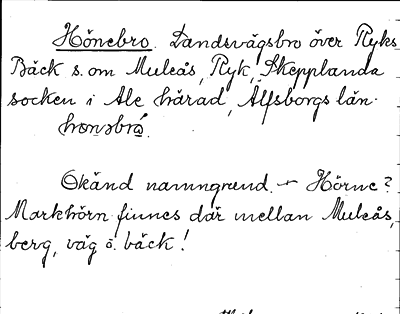 Hönebro. Landsvägsbro över Ryks
Bäck s. om Muleås, Ryk, Skepplanda
socken i Ale härad, Älfsborgs län.
Okänd namngrund. Hörne?
Markhörn finnes där mellan Muleås,
berg, väg o. bäck!